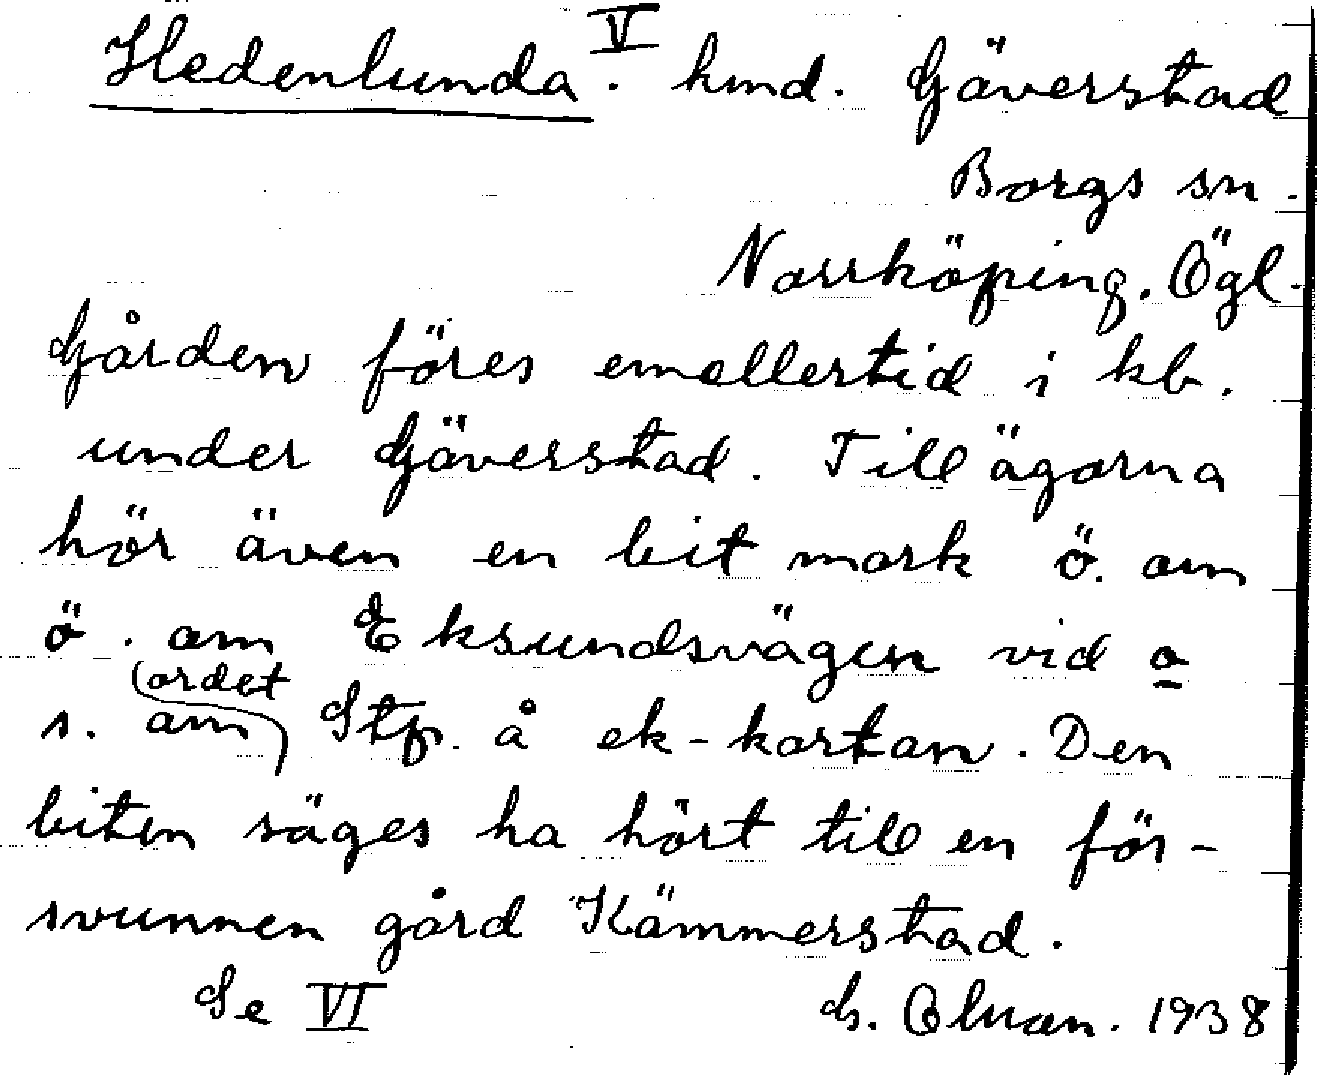 Hedenlunda. V hmd. Gäverstad
Borgs sn.
Norrköping. Ögl.
Gården föres emellertid i kb.
under Gäverstad. Till ägorna
hör även en bit mark ö. om
ö. om Eksundsvägen vid o
(ordet
s. om) Stp. å ek-kartan. Den
biten säges ha hört till en för-
svunnen gård Kämmerstad.
Se VI 1938